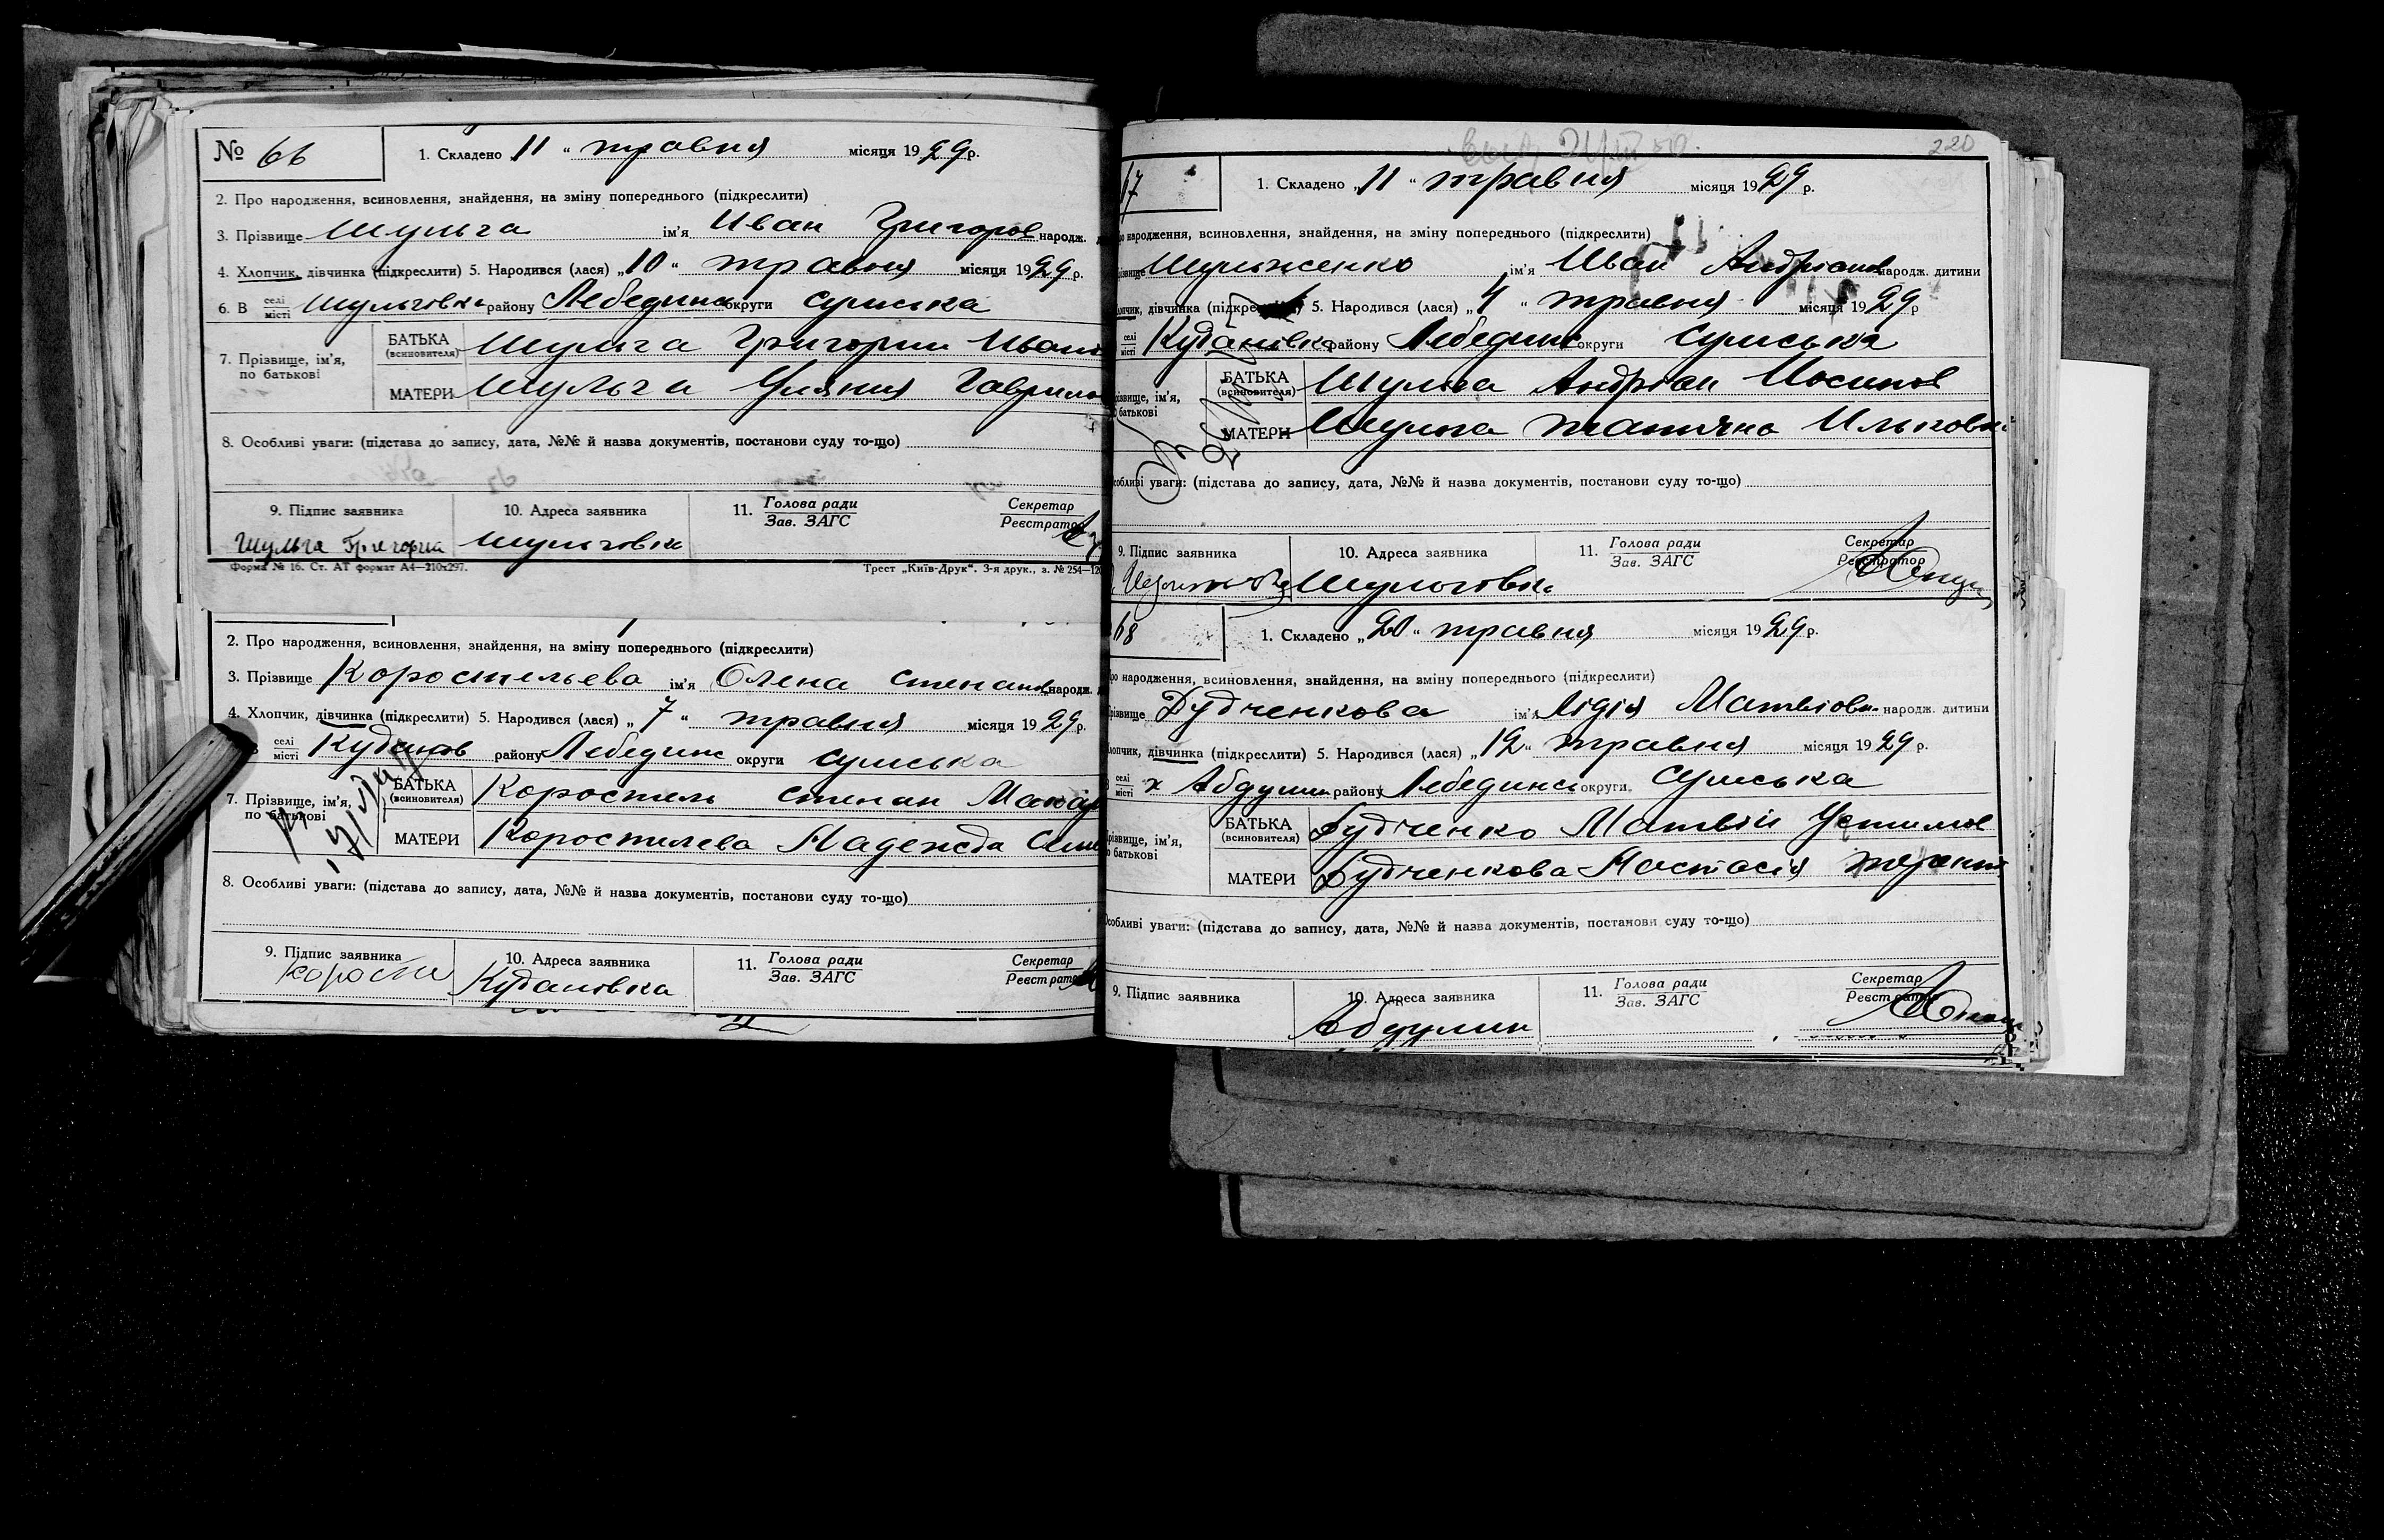 № 66
1. Складено „11“ травня місяця 1929р.
2. Про народження, всиновлення, знайдення, на зміну попереднього (підкреслити)
3. Прізвище Шульга ім'я Иван Григоров народж.
4. Хлопчик, дівчинка (підкреслити) 5. Народився (лася) „10“ травня місяця 1929р.
6. В селі місті Шульговка району Лебединс округи Сумська
7. Прізвище, ім'я, по батькові
БАТЬКА (всиновителя) Шульга Григорий
МАТЕРИ Шульга Уляния
8. Особливі уваги: (підстава до запису, дата, №№ й назва документів, постанови суду то-що)
9. Підпис заявника
10. Адреса заявника
11. Голова ради Зав. ЗАГС
Секретар Реєстратор
Шульга Григорий Шульговка
Форма № 16. Ст. АТ формат А4—210х297.
Трест „Київ-Друк“. 3-я друк., з. № 254—120
2. Про народження, всиновлення, знайдення, на зміну попереднього (підкреслити)
3. Прізвище Коростельева ім'я Олена Степанов народж.
4. Хлопчик, дівчинка (підкреслити) 5. Народився (лася) „7“ травня місяця 1929р.
селі місті Куданов району Лебединс округи Сумська
7. Прізвище, ім'я, по батькові
БАТЬКА (всиновителя) Коростель Степан
МАТЕРИ Коростилева Надежда
8. Особливі уваги: (підстава до запису, дата, №№ й назва документів, постанови суду то-що)
9. Підпис заявника
10. Адреса заявника
11. Голова ради Зав. ЗАГС
Секретар Реєстратор
Корости Кудановка
220
67
1. Складено „11“ травня місяця 1929 р.
народження, всиновлення, знайдення, на зміну попереднього (підкреслити)
Шульженко ім'я Иван Андрианов народж. дитини
дівчинка 5. Народився (лася) „4“ травня місяця 1929р
селі місті Кудановка району Лебединс округи Сумська
БАТЬКА (всиновителя) Шульга Андриан Иосипов
МАТЕРИ Шульга Татияна Ильковн
уваги: (підстава до запису, дата, №№ й назва документів, постанови суду то-що)
9. Підпис заявника
10. Адреса заявника
11. Голова ради Зав. ЗАГС
Секретар Реєстратор
Шульговка
68
1. Складено „20“ травня місяця 1929р.
народження, всиновлення, знайдення, на зміну попереднього (підкреслити)
Дудченкова ім'я Лідія Матвіовн народж. дитини
дівчинка (підкреслити) 5. Народився (лася) „12“ травня місяця 1929 р.
селі місті х Абдулин району Лебединсь округи Сумська
БАТЬКА (всиновителя) Дудченко Матвій Устимов
МАТЕРИ Дудченкова Настасія
уваги: (підстава до запису, дата, №№ й назва документів, постанови суду то-що)
9. Підпис заявника
10. Адреса заявника
11. Голова ради Зав. ЗАГС
Секретар Реєстратор
Абдулин